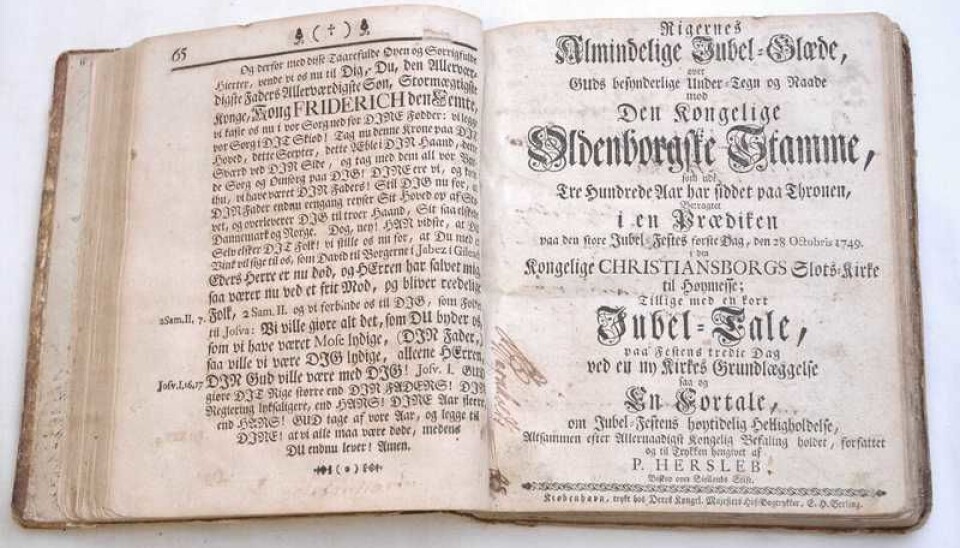 65
( † )
Og derfor med disse Taarefulde Øyen og Sorrigfulde
Hierter, vende vi os nu til Dig, Du, den Allerværdigste
Faders Allerværdigste Søn, Stormægtigste
Konge, Kong FRIDERICH den Femte,
vi kaste os nu i vor Sorg ned for DINE Fødder: vi legge
vor Sorg i DIT Skiød! Tag nu denne Krone paa DIT
Hoved, dette Scepter, dette Æble i DIN Haand, dette
Sværd ved DIN Side, og tag med dem all vor
de Sorg og Omsorg paa DIG! DINE ere vi, og
thi, vi have været DIN Faders! Stil DIG nu for, at
DIN Fader endnu eengang reyser Sit Hoved op af
vet, og overleverer DIG til troer Haand, Sit saa elskede
Dannemark og Norge. Dog, ney! HAN vidste, at DU
Selv elsker DIT Folk! vi stille os nu for, at Du med et
Vink vil sige til os, som David til Borgerne i Jabez i Gilead
Eders Herre er nu død, og HErren har salvet mig,
saa værer nu ved et frit Mod, og bliver
2 Sam. II, 7. Folk, 2 Sam. II. og vi forbinde os til DIG, som Folket
til Josva: Vi ville giøre alt det, som DU byder os,
som vi have været Mose lydige, (DIN Fader,)
saa ville vi være DIG lydige, alleene HErren,
Josv. I, 16, 17 DIN Gud ville være med DIG! Josv. I. GUD
giøre DIT Rige større end DIN FADERS! DIN
Regiering lyksaligere, end HANS! DINE Aar fleere,
end HANS! GUD tage af vore Aar, og legge til
DINE! at vi alle maa være døde, medens
DU endnu lever! Amen.
Rigernes
Almindelige Jubel-Glæde,
over
GUds besynderlige Under-Tegn og Naade
mod
Den Kongelige
Oldenborgske Stamme,
som udi
Tre Hundrede Aar har siddet paa Thronen,
Betragtet
i en Prædiken
paa den store Jubel-Festes første Dag, den 28 Octobris 1749.
i den
Kongelige CHRISTIANSBORGS Slots-Kirke
til Høymesse;
Tillige med en kort
Jubel-Tale,
paa Festens tredie Dag
ved en ny Kirkes Grundlæggelse
saa og
En Fortale,
om Jubel-Festens høytidelig Helligholdelse,
Altsammen efter Allernaadigst Kongelig Befaling holdet, forfattet
og til Trykken hengivet af
P. HERSLEB.
Biskop over Siellands Stift.
Kiøbenhavn, trykt hos Deres Kongel. Majestets Hof-Bogtrykker, E. H. Berling.